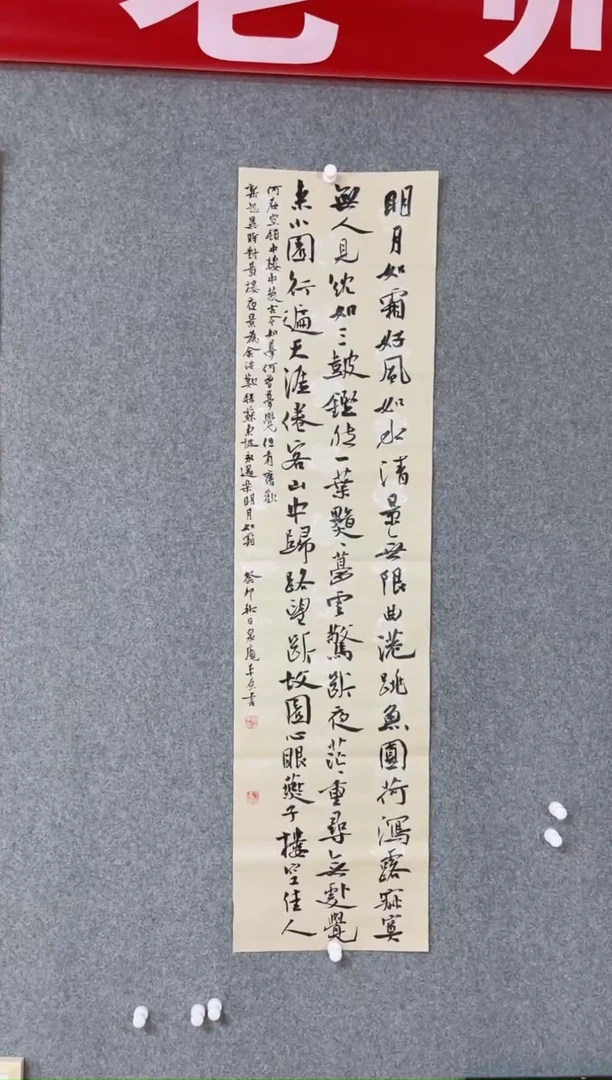 老师
明月如霜好風如水清景無限曲港跳魚圓荷瀉露寂寞
無人見紞如三鼓鏗然一葉黯黯夢雲驚斷夜茫茫重尋無處覺
來小園行遍天涯倦客山中歸路望斷故園心眼燕子樓空佳人
何在空鎖中樓中燕古今如夢何曾夢覺但有舊歡
新怨異時對黃樓夜景為余浩歎 錄蘇東坡永遇樂明月如霜 癸卯秋日 書